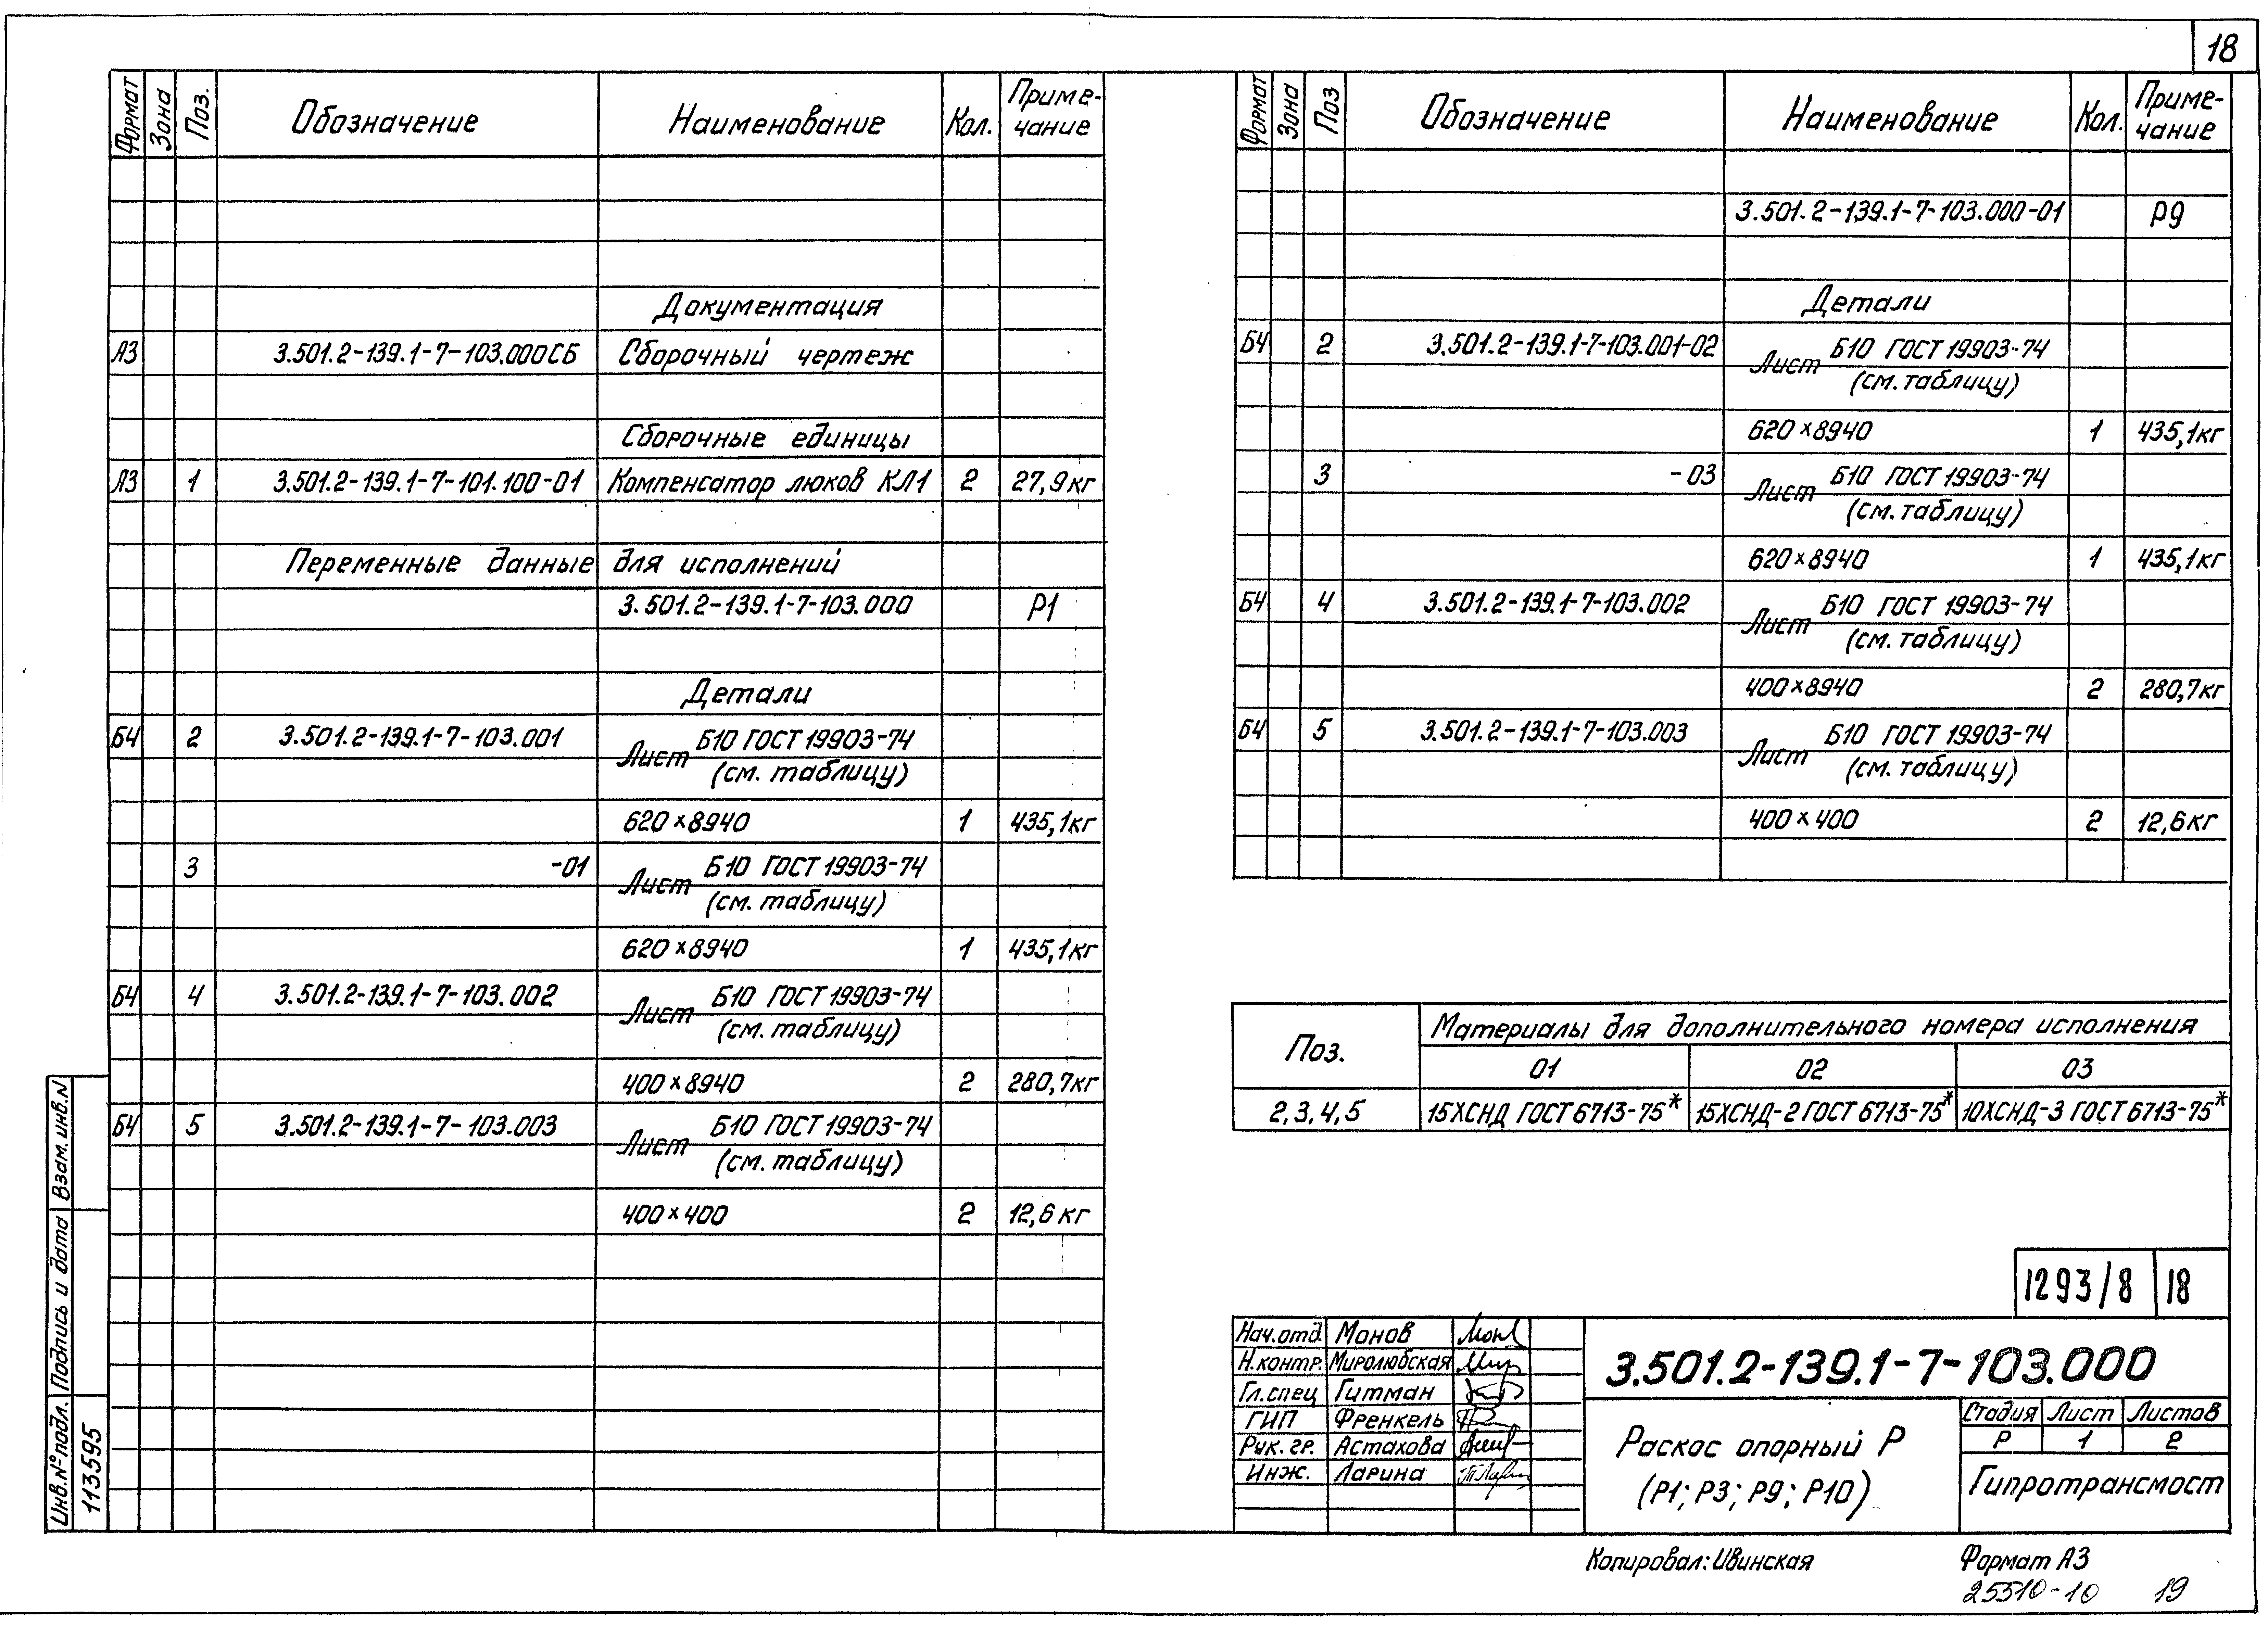 18
Формат Зона Поз. Обозначение Наименование Кол. Приме-
чание
Документация
А3 3.501.2-139.1-7-103.000СБ Сборочный чертеж
Сборочные единицы
А3 1 3.501.2-139.1-7-101.100-01 Компенсатор люков КЛ1 2 27,9кг
Переменные данные для исполнений
3.501.2-139.1-7-103.000 Р1
Детали
БЧ 2 3.501.2-139.1-7-103.001 Лист Б10 ГОСТ 19903-74
(см. таблицу)
620×8940 1 435,1кг
3 -01 Лист Б10 ГОСТ 19903-74
(см. таблицу)
620×8940 1 435,1кг
БЧ 4 3.501.2-139.1-7-103.002 Лист Б10 ГОСТ 19903-74
(см. таблицу)
400×8940 2 280,7кг
БЧ 5 3.501.2-139.1-7-103.003 Лист Б10 ГОСТ 19903-74
(см. таблицу)
400×400 2 12,6кг
Формат Зона Поз Обозначение Наименование Кол. Приме-
чание
3.501.2-139.1-7-103.000-01 Р9
Детали
БЧ 2 3.501.2-139.1-7-103.001-02 Лист Б10 ГОСТ 19903-74
(см. таблицу)
620×8940 1 435,1кг
3 -03 Лист Б10 ГОСТ 19903-74
(см. таблицу)
620×8940 1 435,1кг
БЧ 4 3.501.2-139.1-7-103.002 Лист Б10 ГОСТ 19903-74
(см. таблицу)
400×8940 2 280,7кг
БЧ 5 3.501.2-139.1-7-103.003 Лист Б10 ГОСТ 19903-74
(см. таблицу)
400×400 2 12,6кг
Поз. Материалы для дополнительного номера исполнения
01 02 03
2,3,4,5 15ХСНД ГОСТ 6713-75* 15ХСНД-2 ГОСТ 6713-75* 10ХСНД-3 ГОСТ 6713-75*
1293/8 18
Нач.отд. Монов
Н.контр. Миролюбская
Гл.спец Гитман
ГИП Френкель
Рук. гр. Астахова
Инж. Ларина
3.501.2-139.1-7-103.000
Раскос опорный Р
(Р1; Р3; Р9; Р10)
Стадия Лист Листов
Р 1 2
Гипротрансмост
Копировал: Ивинская Формат А3
25510-10 19
Инв.№ подл. Подпись и дата Взам.инв.N
113595